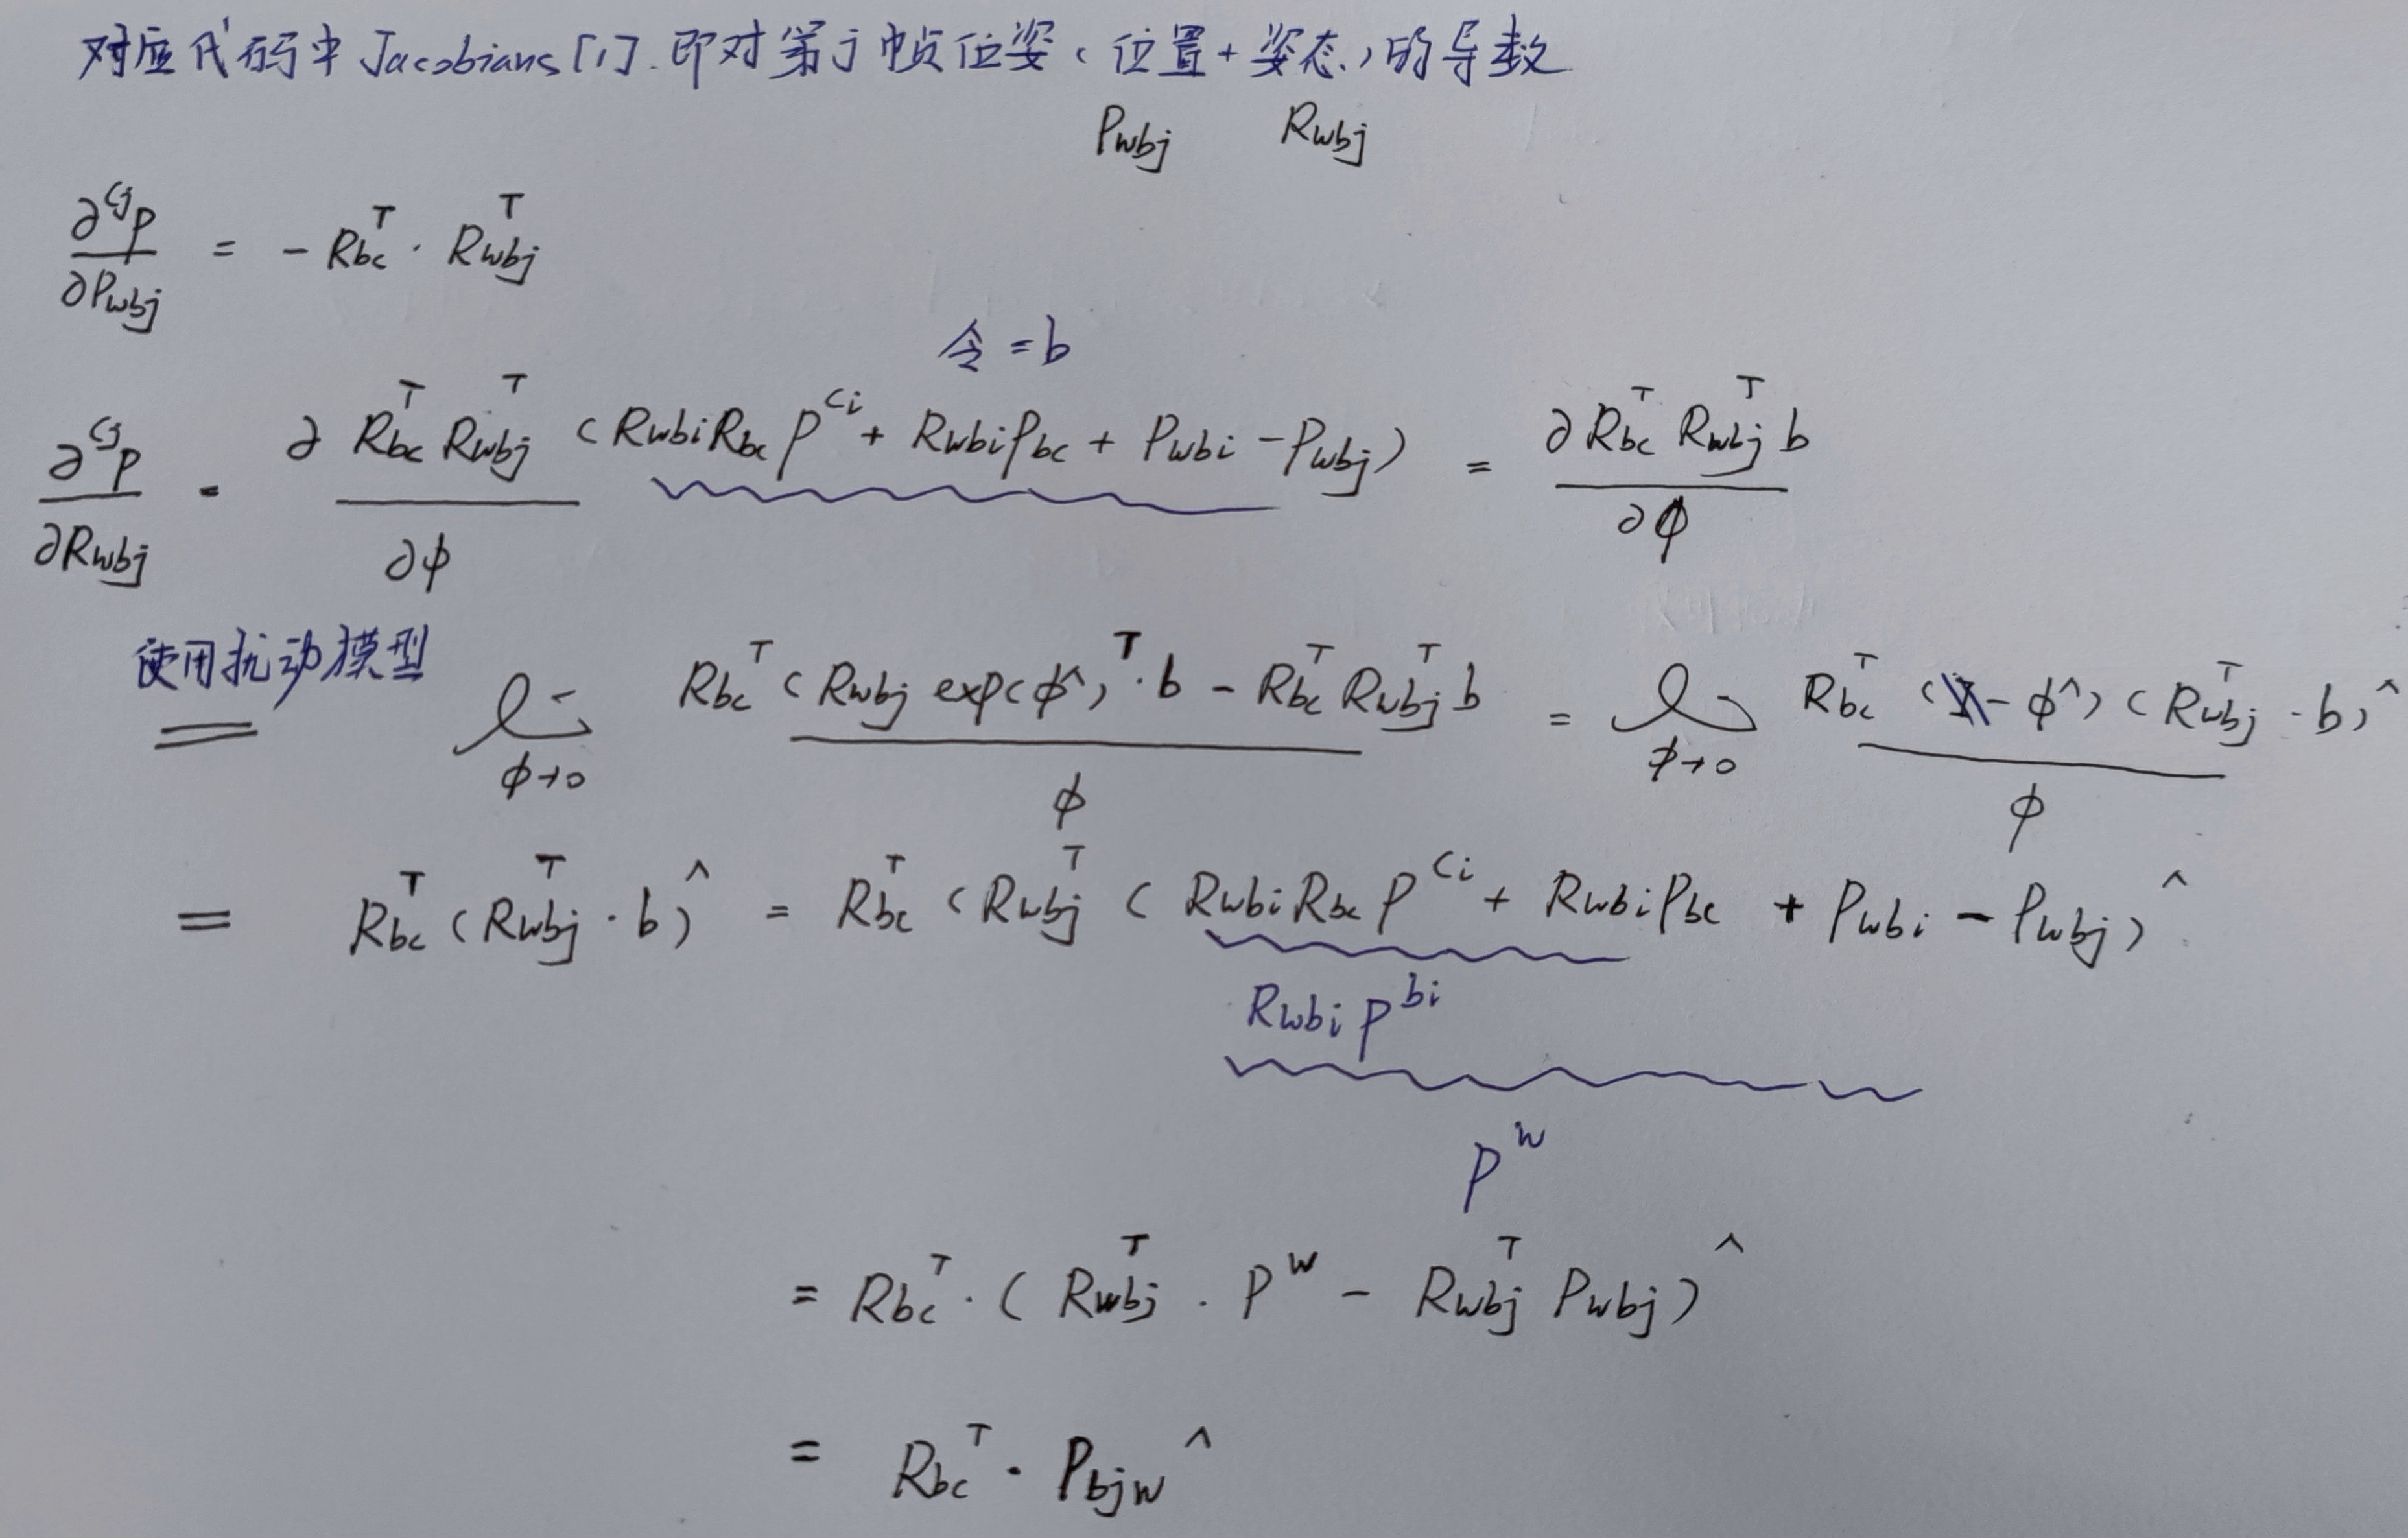 对应代码中 Jacobians [1]. 即对第 j 帧位姿（位置+姿态）的导数
Pwbj Rwbj
∂ᶜʲp / ∂Pwbj = - Rbcᵀ · Rwbjᵀ
令 = b
∂ᶜʲp / ∂Rwbj = ∂ Rbcᵀ Rwbjᵀ (RwbiRbc p^ci + RwbiPbc + Pwbi - Pwbj) / ∂ϕ = ∂ Rbcᵀ Rwbjᵀ b / ∂ϕ
使用扰动模型
= lim ϕ→0 Rbcᵀ (Rwbj exp(ϕ^)ᵀ · b - Rbcᵀ Rwbjᵀ b / ϕ = lim ϕ→0 Rbcᵀ (- ϕ^) (Rwbjᵀ · b)^ / ϕ
= Rbcᵀ (Rwbjᵀ · b)^ = Rbcᵀ (Rwbjᵀ ( RwbiRbc p^ci + RwbiPbc + Pwbi - Pwbj)^
Rwbi p^bi
p^w
= Rbcᵀ · ( Rwbjᵀ · p^w - Rwbjᵀ Pwbj)^
= Rbcᵀ · Pbjw^